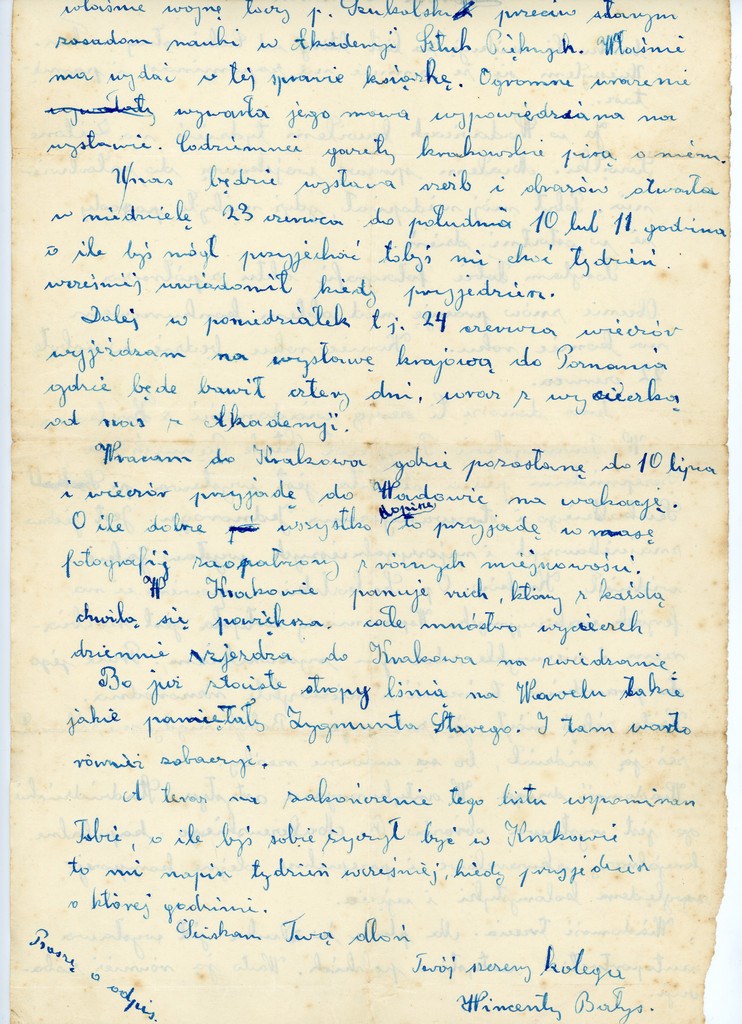 właśnie wojnę toczy p. Szukalski przeciw starym
zasadom nauki w Akademji Sztuk Pięknych. Właśnie
ma wydać w tej sprawie książkę. Ogromne wrażenie
wywarła jego mowa wypowiedziana na
wystawie. Codziennie gazety krakowskie piszą o niem.
U nas będzie wystawa rzeźb i obrazów otwarta
w niedzielę 23 czerwca do południa 10 lub 11 godzina
o ile byś mógł przyjechać tobyś mi choć tydzień
wcześniej uwiadomił kiedy przyjedziesz.
Dalej w poniedziałek t j. 24 czerwca wieczór
wyjeżdzam na wystawę krajową do Poznania
gdzie będe bawił cztery dni, wraz z wycieczką
od nas z Akademji.
Wracam do Krakowa gdzie pozostanę do 10 lipca
i wieczór przyjadę do Wadowic na wakacje.
O ile dobrze wszystko dopisze to przyjadę w masę
fotografij zaopatrzony z rożnych miejscowości.
W Krakowie panuje ruch, który z każdą
chwilą się powiększa. całe mnóstwo wycieczek
dziennie zjeżdza do Krakowa na zwiedzanie.
Bo już złociste stropy lśnią na Wawelu takie
jakie pamiętały Zygmunta Starego. I tam warto
również zobaczyć.
A teraz na zakończenie tego listu wspominam
Tobie, o ile byś sobie życzył być w Krakowie
to mi napisz tydzień wcześniej, kiedy przyjedziesz
o której godzinie.
Ściskam Twą dłoń
Twój szczery kolega
Wincenty Bałys.
Proszę o odpis.